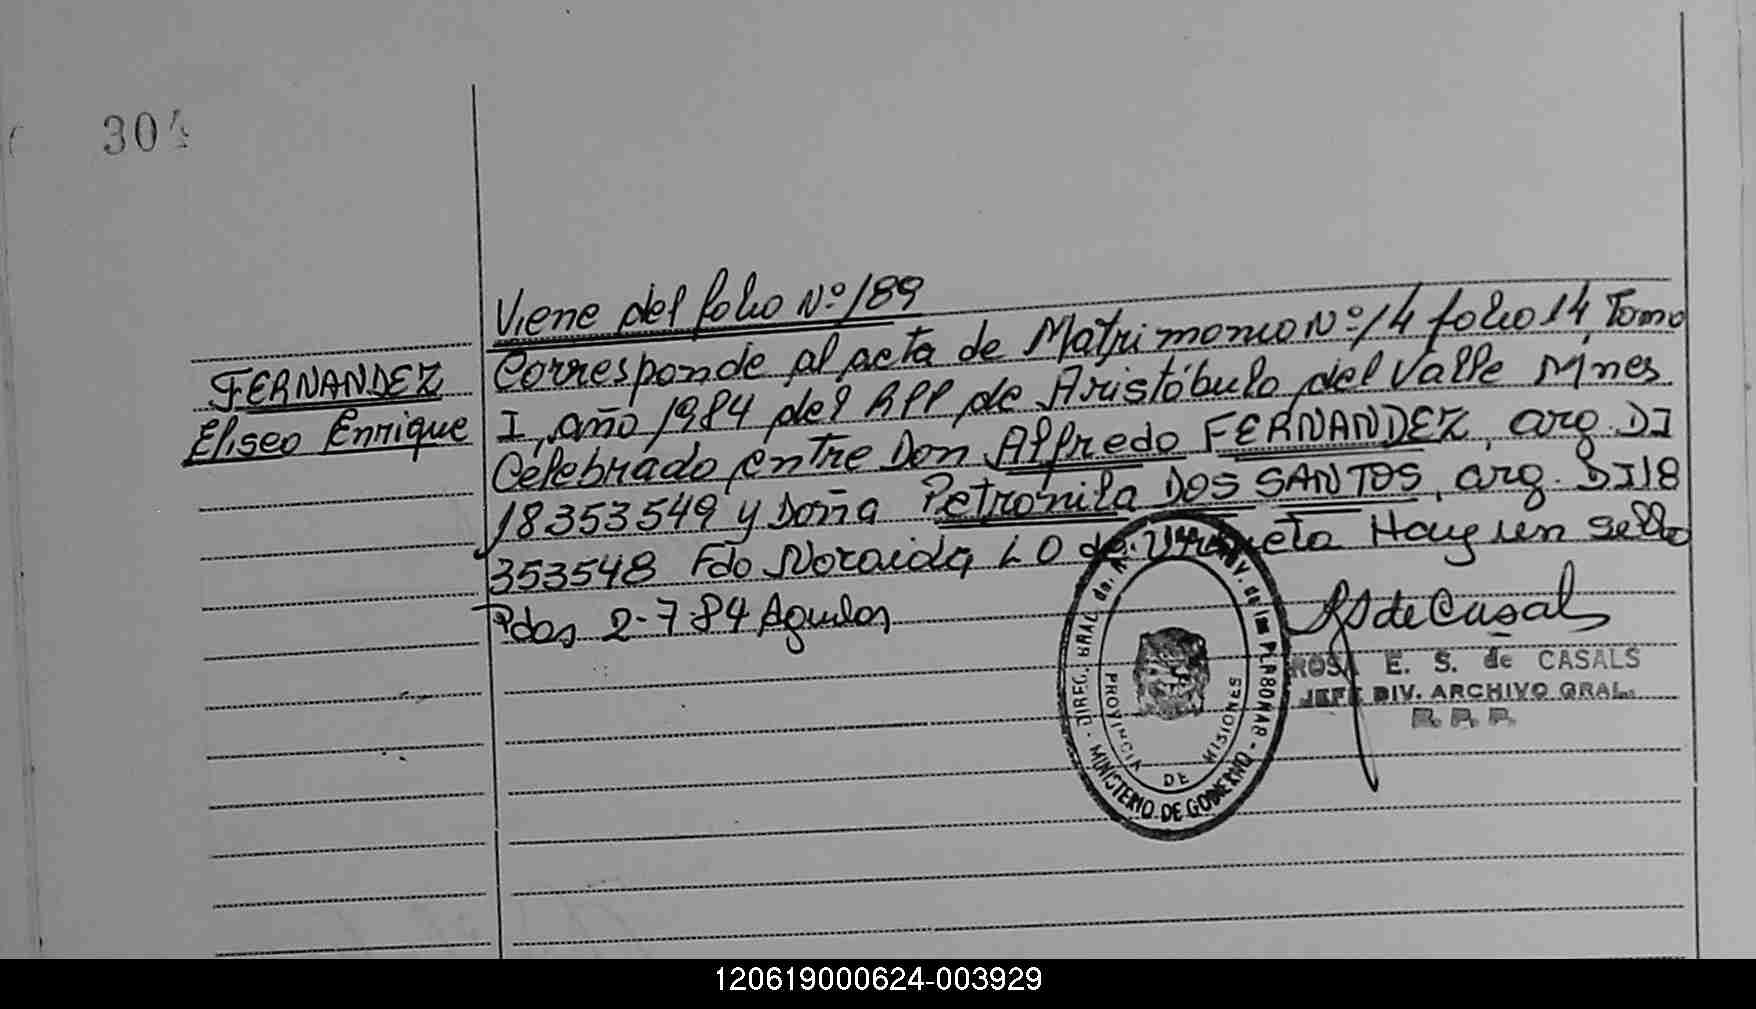 304
Viene del folio Nº 189
FERNANDEZ
Eliseo Enrique
Corresponde al acta de Matrimonio Nº 14 folio 14, Tomo
I, año 1984 del RPP de Aristóbulo del Valle Mnes
Celebrado entre Don Alfredo FERNANDEZ, arg. DI
18353549 y Doña Petronila DOS SANTOS, arg. DI 18
353548 Fdo Noraida L O de Hay un sello
Pdas 2-7-84
DIREC. GRAL. de
PROVINCIA DE MISIONES
MINISTERIO DE GOBIERNO
RS de Casals
ROSA E. S. de CASALS
JEFE DIV. ARCHIVO GRAL.
R. P. P.
120619000624-003929